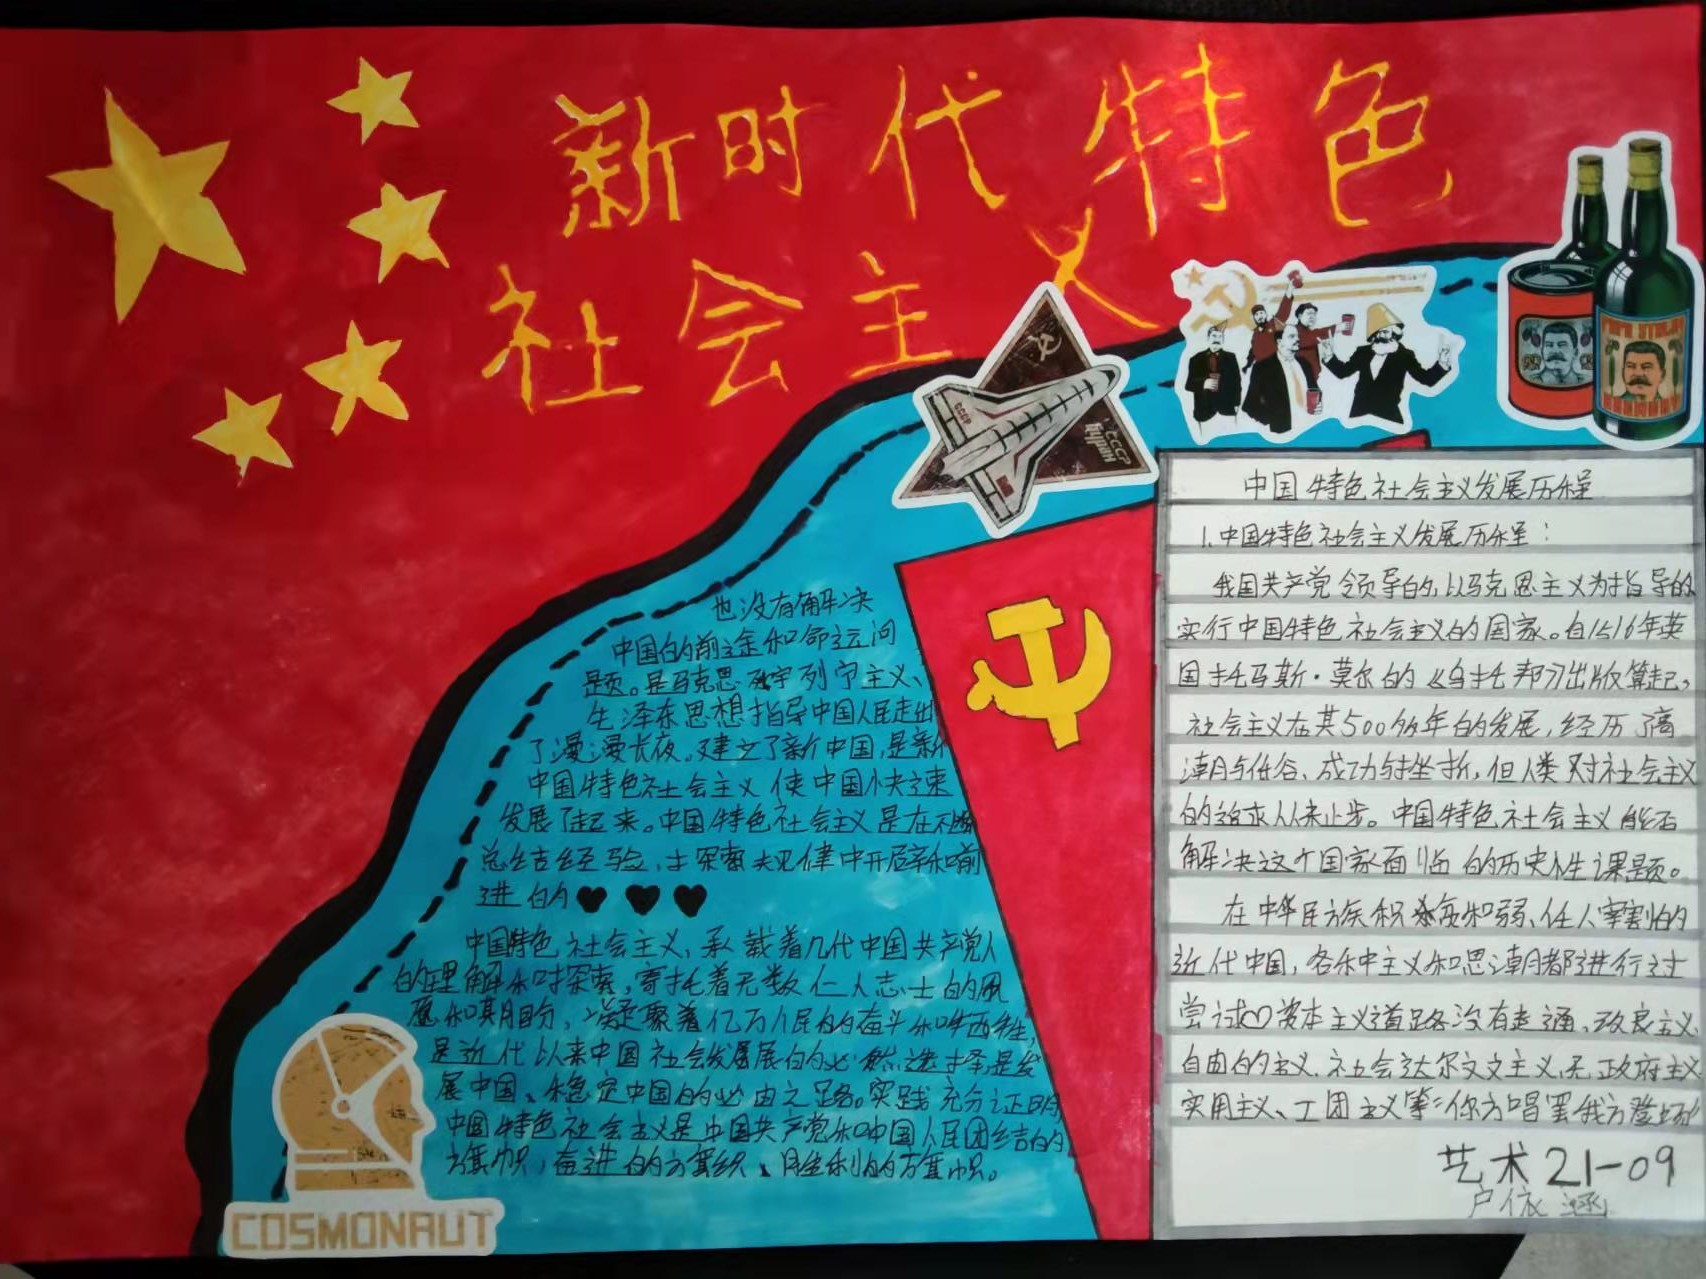 新时代特色
社会主义
СССР
СССР
Буран
PAPA STALIN
中国特色社会主义发展历程
1.中国特色社会主义发展历程:
我国共产党领导的,以马克思主义为指导的
实行中国特色社会主义的国家。自1516年英
国托马斯·莫尔的《乌托邦》出版算起,
社会主义在其500多年的发展,经历了高
潮与低谷、成功与挫折,但人类对社会主义
的追求从未止步。中国特色社会主义能否
解决这个国家面临的历史性课题。
在中华民族积贫和弱、任人宰割的
近代中国,各种主义和思潮都进行过
尝试 资本主义道路没有走通、改良主义、
自由的主义、社会达尔文主义、无政府主义
实用主义、工团主义等"你方唱罢我方登场"
艺术21-09
卢依涵
也没有解决
中国的前途和命运问
题。是马克思 列宁主义、
毛泽东思想指导中国人民走出
了漫漫长夜。建立了新中国,是新
中国特色社会主义使中国快速
发展了起来。中国特色社会主义是在不断
总结经验,主探索规律中开辟和前
进的
中国特色社会主义,承载着几代中国共产党人
的理解和对探索,寄托着无数仁人志士的夙
愿和期盼,凝聚着亿万人民的奋斗和牺牲,
是近代以来中国社会发展的必然选择是发
展中国、稳定中国的必由之路。实践充分证明
中国特色社会主义是中国共产党和中国人民团结的
旗帜,奋进的旗帜、胜利的旗帜。
COSMONAUT